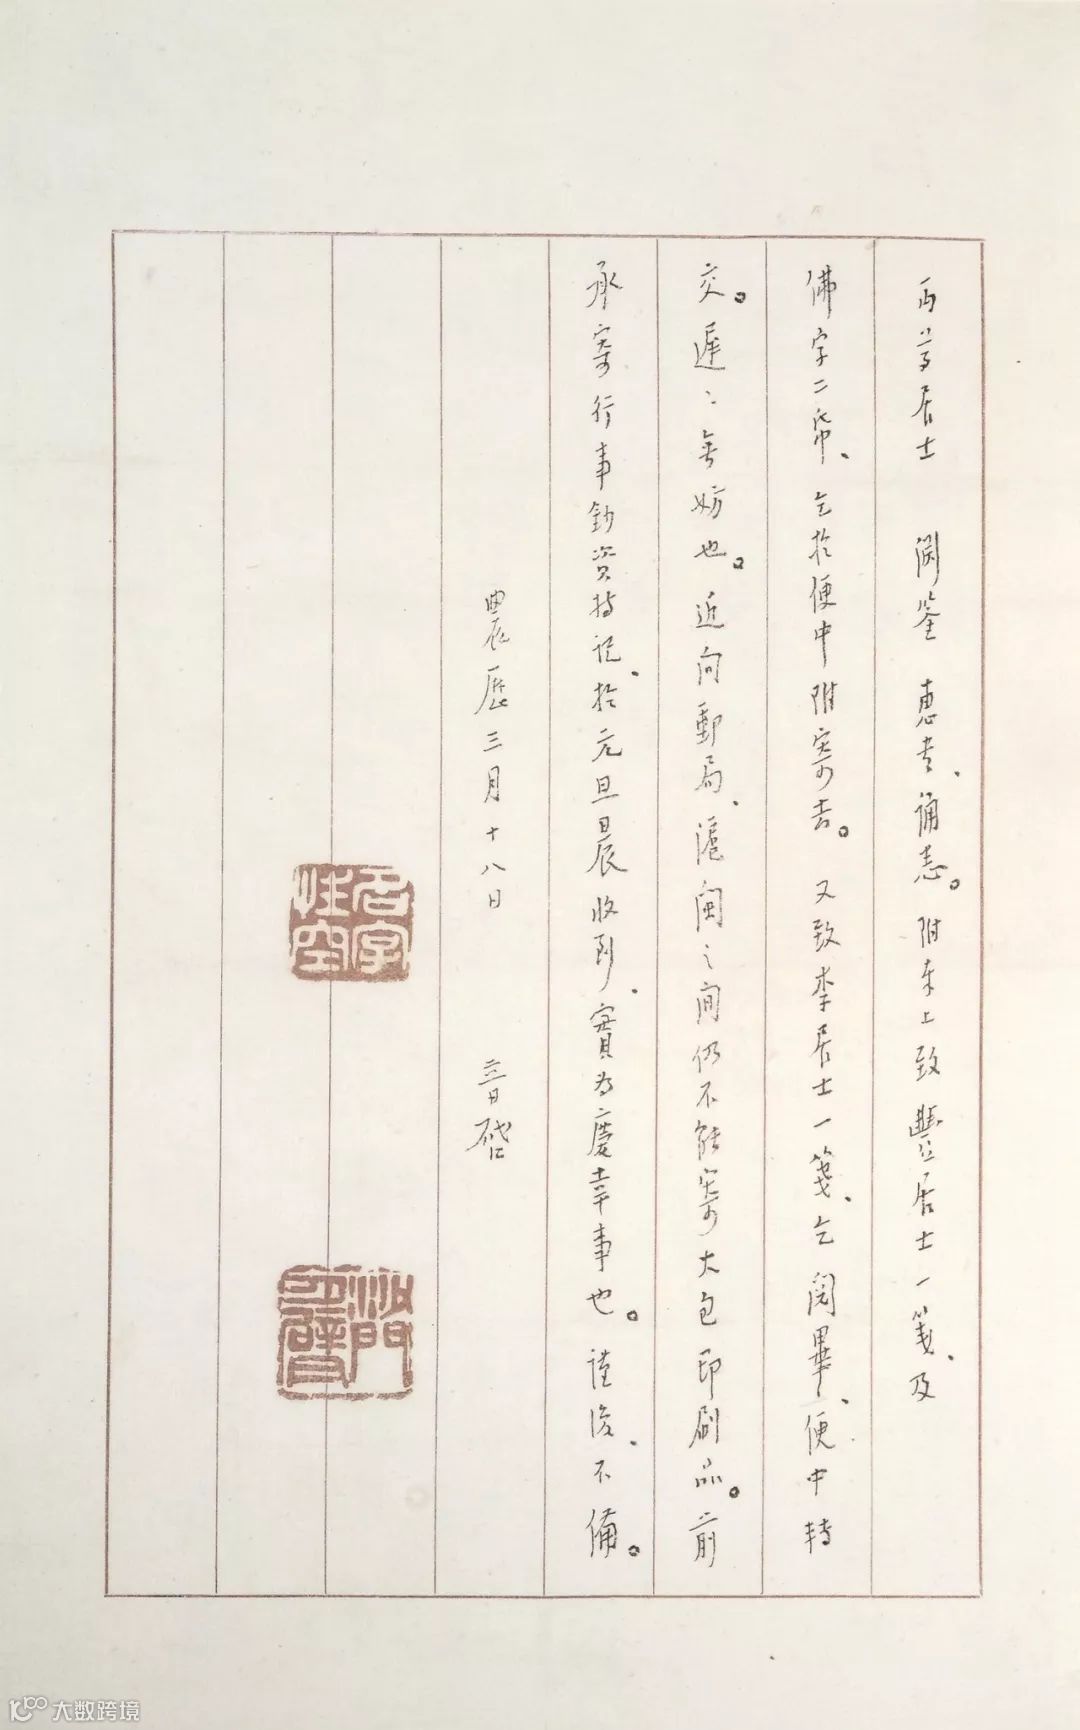 丏尊居士　淵鉴　惠書、誦悉。附奉上致　豐居士一箋、及
佛字二帋、乞於便中附寄去。又致李居士一箋、乞　閱畢、便中轉
交。遲〻無妨也。近向郵局、滬閩之间仍不能寄大包印刷品。前
承寄行事鈔資持记、於元旦日晨收到、實为慶幸事也。謹復、不備。
農历三月十八日　　音啓
名字性空
沙門月臂
大数跨境